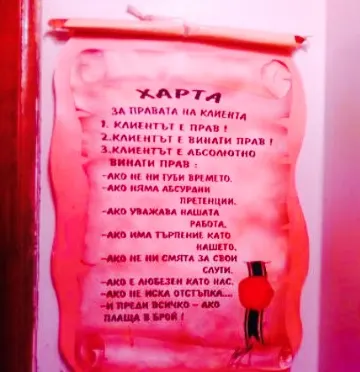 ХАРТА
ЗА ПРАВАТА НА КЛИЕНТА
1. КЛИЕНТЪТ Е ПРАВ !
2. КЛИЕНТЪТ Е ВИНАГИ ПРАВ !
3. КЛИЕНТЪТ Е АБСОЛЮТНО
ВИНАГИ ПРАВ :
-АКО НЕ НИ ГУБИ ВРЕМЕТО.
-АКО НЯМА АБСУРДНИ
ПРЕТЕНЦИИ.
-АКО УВАЖАВА НАШАТА
РАБОТА.
-АКО ИМА ТЪРПЕНИЕ КАТО
НАШЕТО.
-АКО НЕ НИ СМЯТА ЗА СВОИ
СЛУГИ.
-АКО Е ЛЮБЕЗЕН КАТО НАС.
-АКО НЕ ИСКА ОТСТЪПКА....
-И ПРЕДИ ВСИЧКО - АКО
ПЛАЩА В БРОЙ !